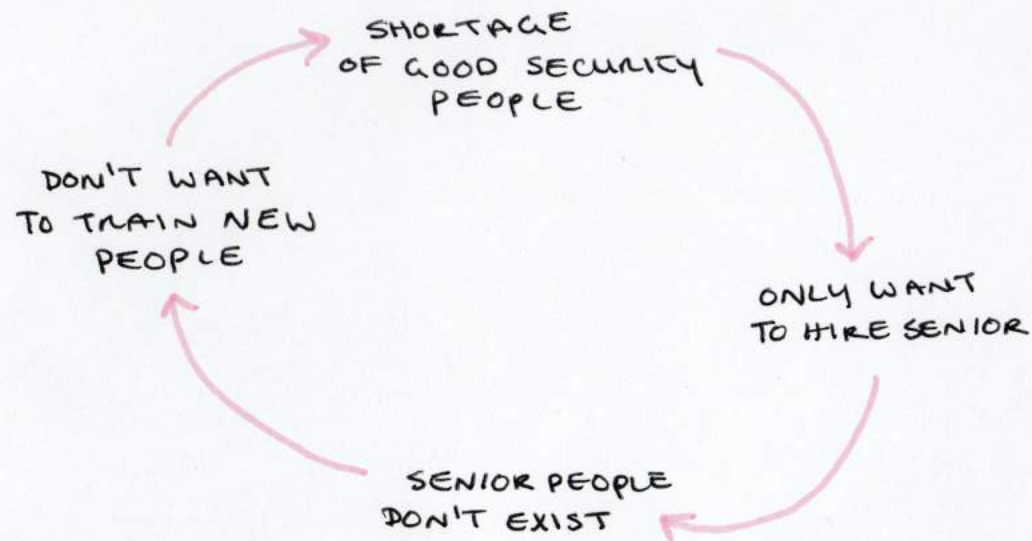 SHORTAGE
OF GOOD SECURITY
PEOPLE
ONLY WANT
TO HIRE SENIOR
SENIOR PEOPLE
DON'T EXIST
DON'T WANT
TO TRAIN NEW
PEOPLE